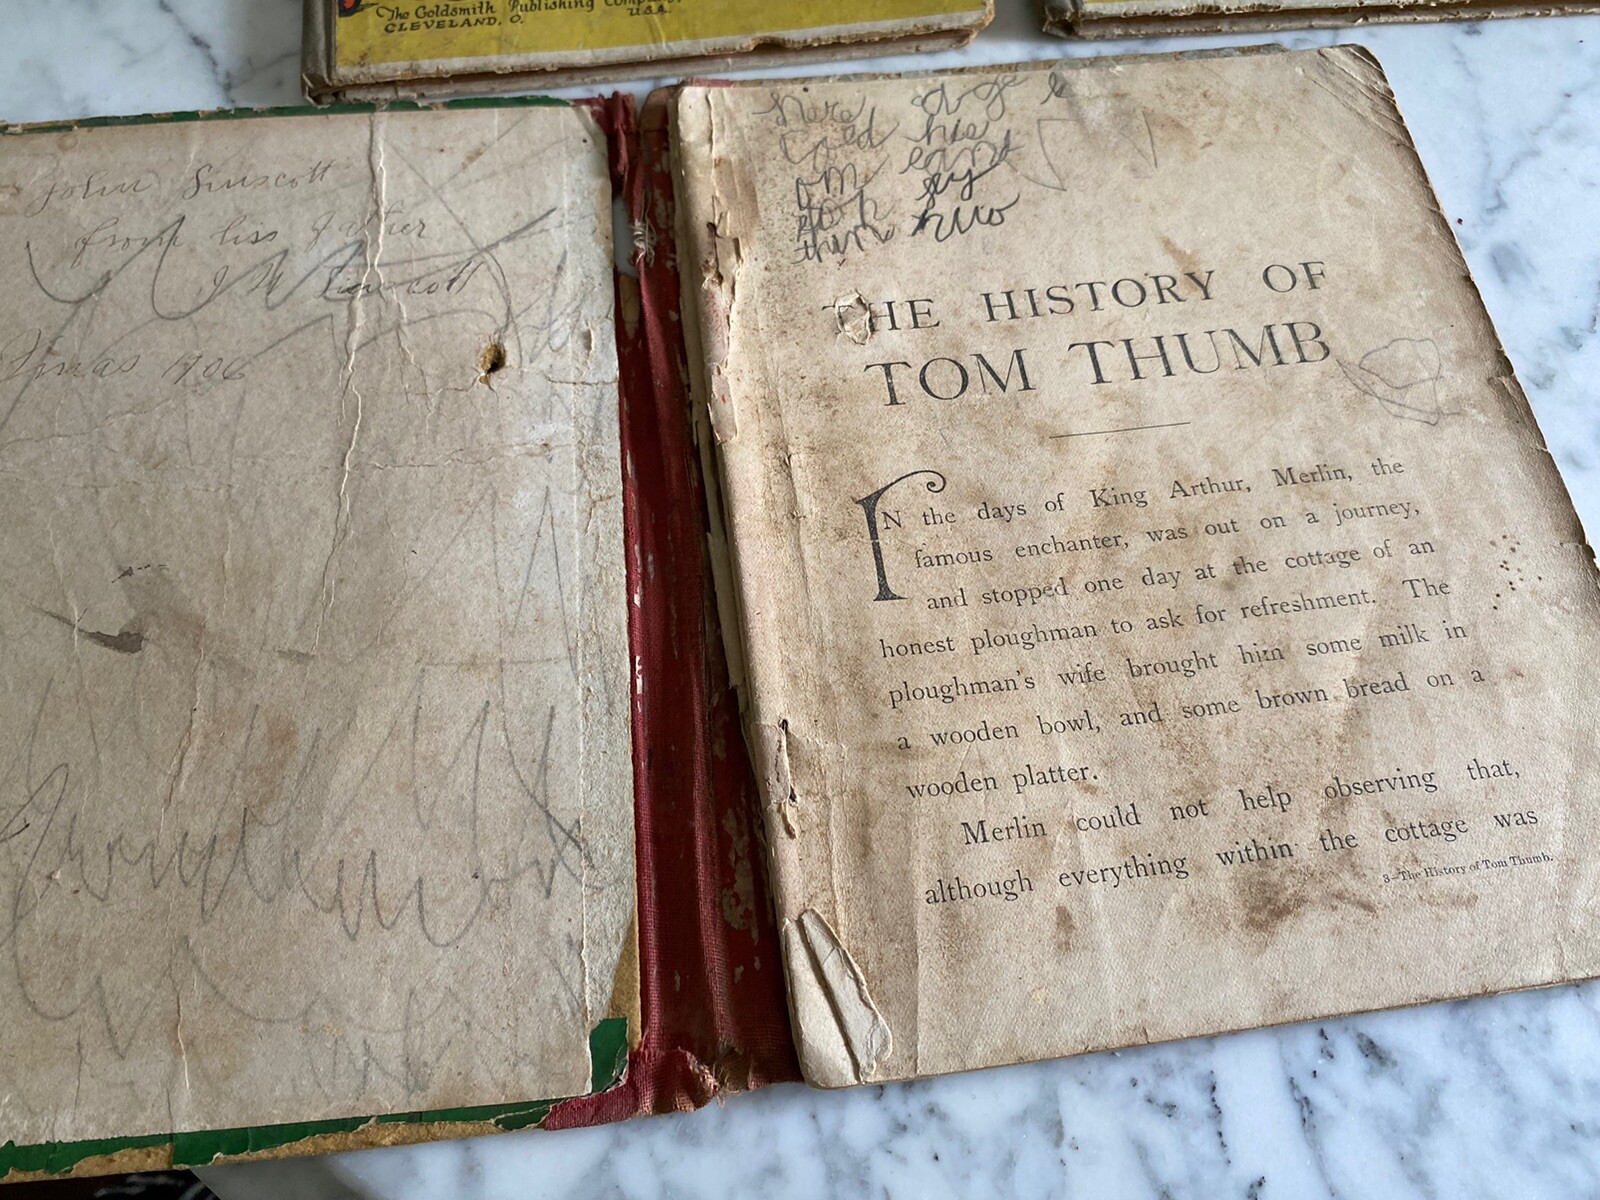 The Goldsmith Publishing Company,
CLEVELAND, O. U.S.A.
John Linscott
from his father
J W Linscott
Xmas 1906
his
say
think
THE HISTORY OF
TOM THUMB
IN the days of King Arthur, Merlin, the
famous enchanter, was out on a journey,
and stopped one day at the cottage of an
honest ploughman to ask for refreshment. The
ploughman's wife brought him some milk in
a wooden bowl, and some brown bread on a
wooden platter.
Merlin could not help observing that,
although everything within the cottage was
3-The History of Tom Thumb.